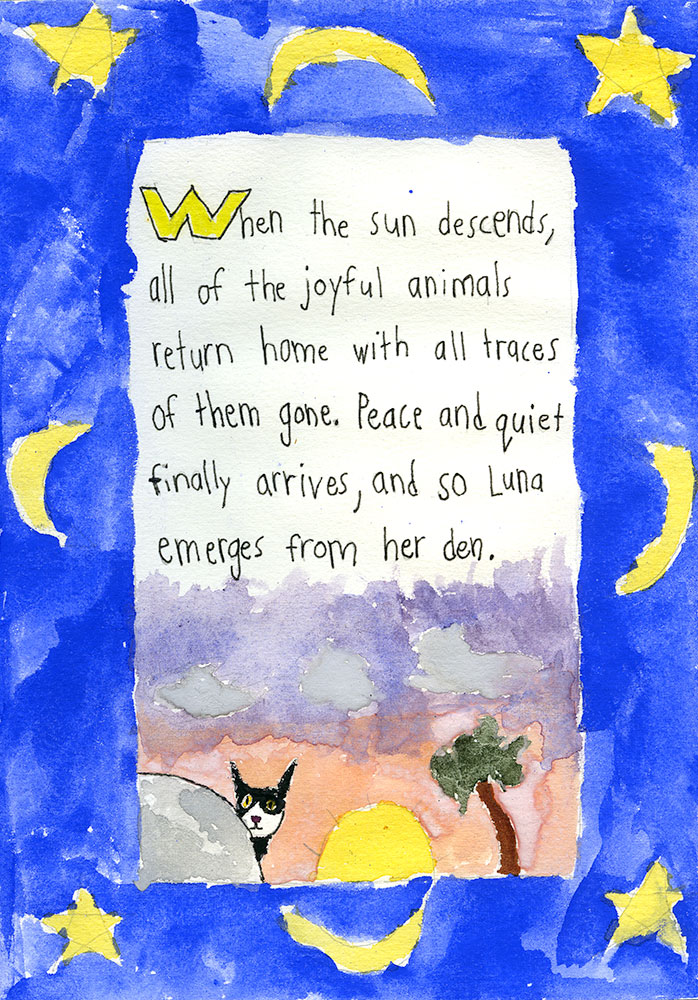 When the sun descends,
all of the joyful animals
return home with all traces
of them gone. Peace and quiet
finally arrives, and so Luna
emerges from her den.